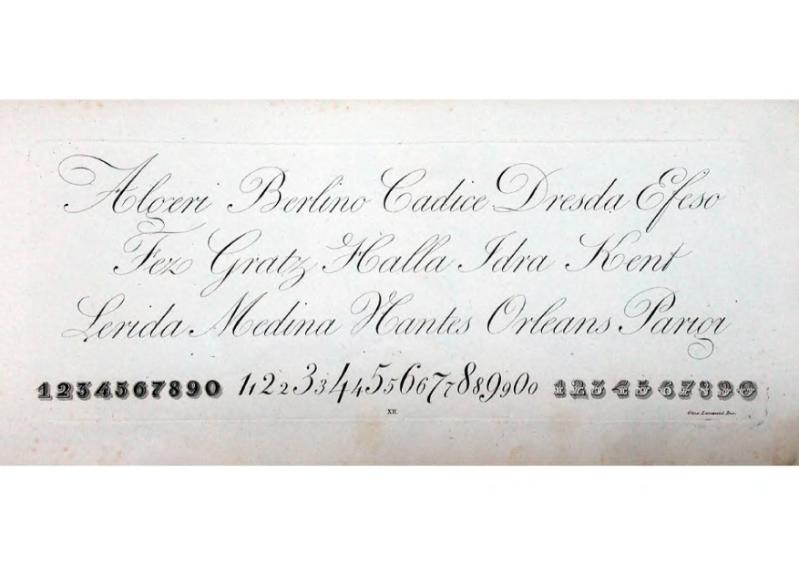 Algeri Berlino Cadice Dresda Efeso
Fez Gratz Halla Idra Kent
Lerida Medina Nantes Orleans Parigi
1234567890 11223344556677889900 1234567890
XII.